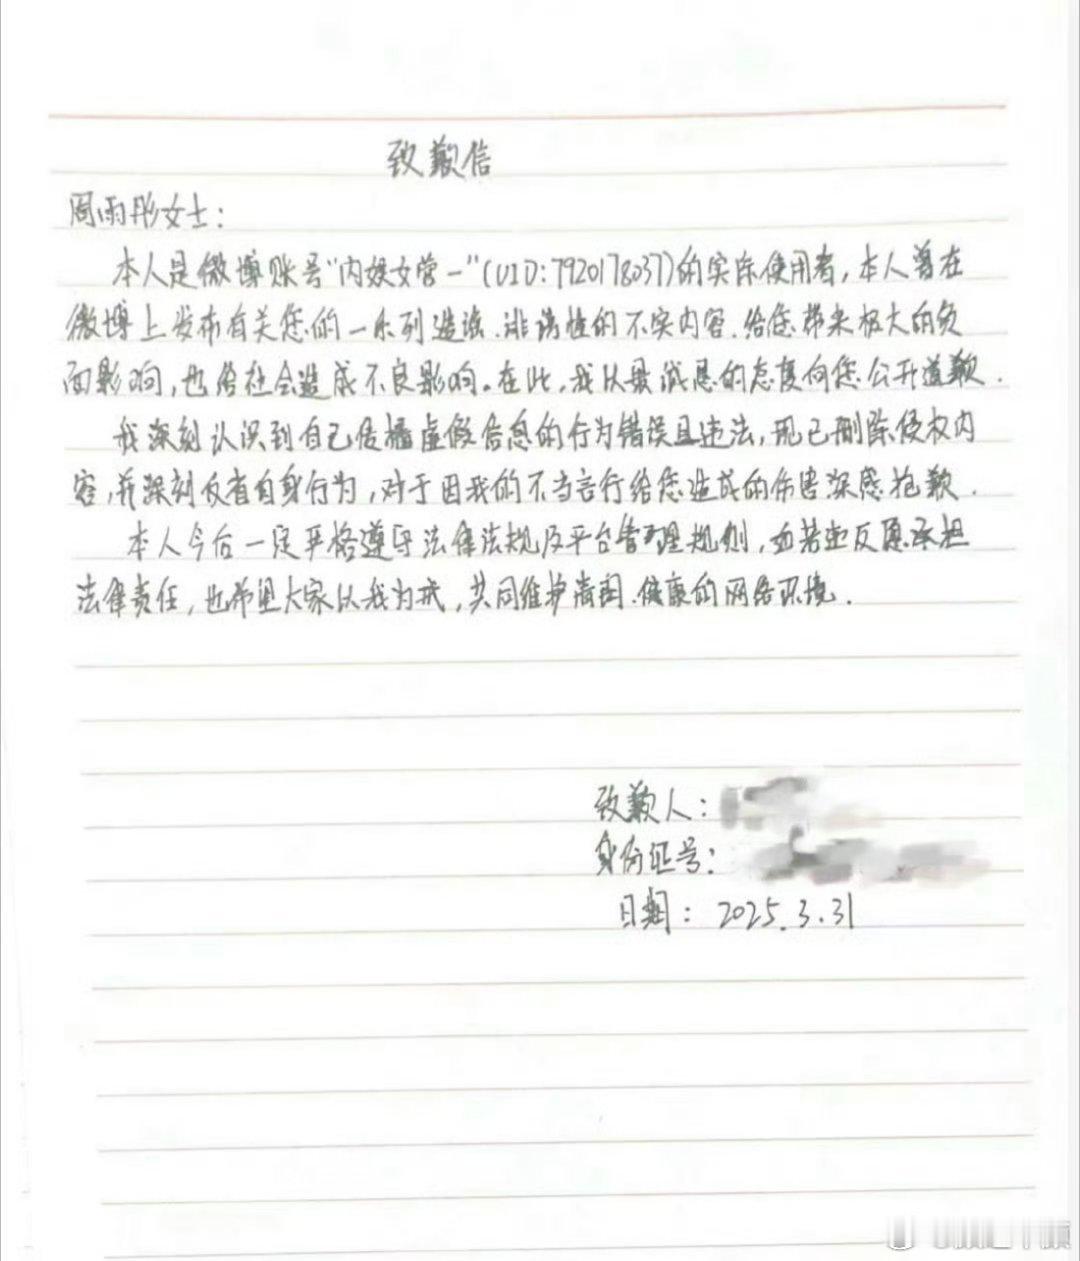 致歉信
周雨彤女士:
本人是微博账号"内娱女营一"(UID:7920178037)的实际使用者,本人曾在
微博上发布有关您的一系列造谣、诽谤性的不实内容.给您带来极大的负
面影响,也给社会造成不良影响。在此,我以最诚恳的态度向您公开道歉.
我深刻认识到自己传播虚假信息的行为错误且违法,现已删除侵权内
容,并深刻反省自身行为,对于因我的不当言行给您造成的伤害深感抱歉.
本人今后一定严格遵守法律法规及平台管理规则,如若违反愿承担
法律责任,也希望大家以我为戒,共同维护清朗.健康的网络环境.
致歉人:
身份证号:
日期: 2025.3.31